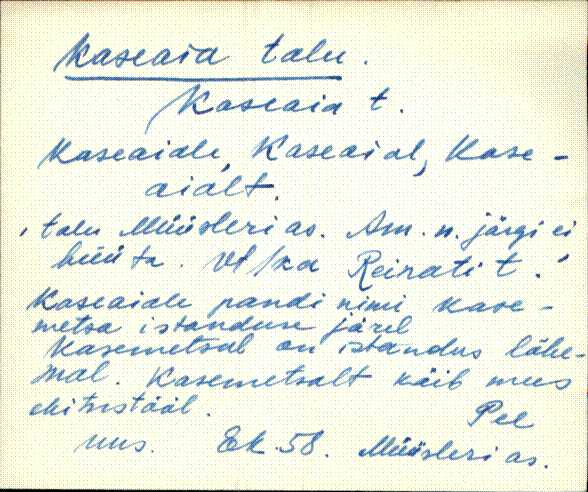 Kaseaia talu.
Kaseaia t.
Kaseaiale, Kaseaial, Kase-
aialt.
, talu Müüsleri as. Am. n. järgi ei
hüüta. Vt /ka Reinati t.'
Kaseaiale pandi nimi kase-
metsa istanduse järel
Kasemetsal on istandus lähe-
mal. Kasemetsalt käib mees
ehitustööl.
Pee
uus. Ek. 58. Müüsleri as.